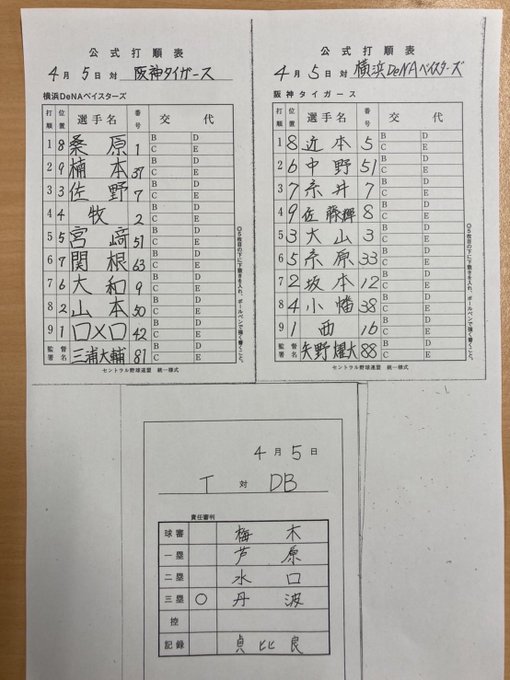 公式打順表
4月5日対 阪神タイガース
横浜DeNAベイスターズ
打順 位置 選手名 番号 交代
1 8 桑原 1 B D C E
2 9 楠本 37 B D C E
3 3 佐野 7 B D C E
4 4 牧 2 B D C E
5 5 宮﨑 51 B D C E
6 7 関根 63 B D C E
7 6 大和 9 B D C E
8 2 山本 50 B D C E
9 1 ロメロ 42 B D C E
監督署名 三浦大輔 81 B D C E
セントラル野球連盟 統一様式
◎5枚目の下に下敷きを入れ、ボールペンで強く書くこと。
公式打順表
4月5日対 横浜DeNAベイスターズ
阪神タイガース
打順 位置 選手名 番号 交代
1 8 近本 5 B D C E
2 6 中野 51 B D C E
3 7 糸井 7 B D C E
4 9 佐藤輝 8 B D C E
5 3 大山 3 B D C E
6 5 糸原 33 B D C E
7 2 坂本 12 B D C E
8 4 小幡 38 B D C E
9 1 西 16 B D C E
監督署名 矢野燿大 88 B D C E
セントラル野球連盟 統一様式
◎5枚目の下に下敷きを入れ、ボールペンで強く書くこと。
4月5日
T 対 DB
責任審判
球審 梅木
一塁 芦原
二塁 水口
三塁 ○ 丹波
控
記録 貞比良